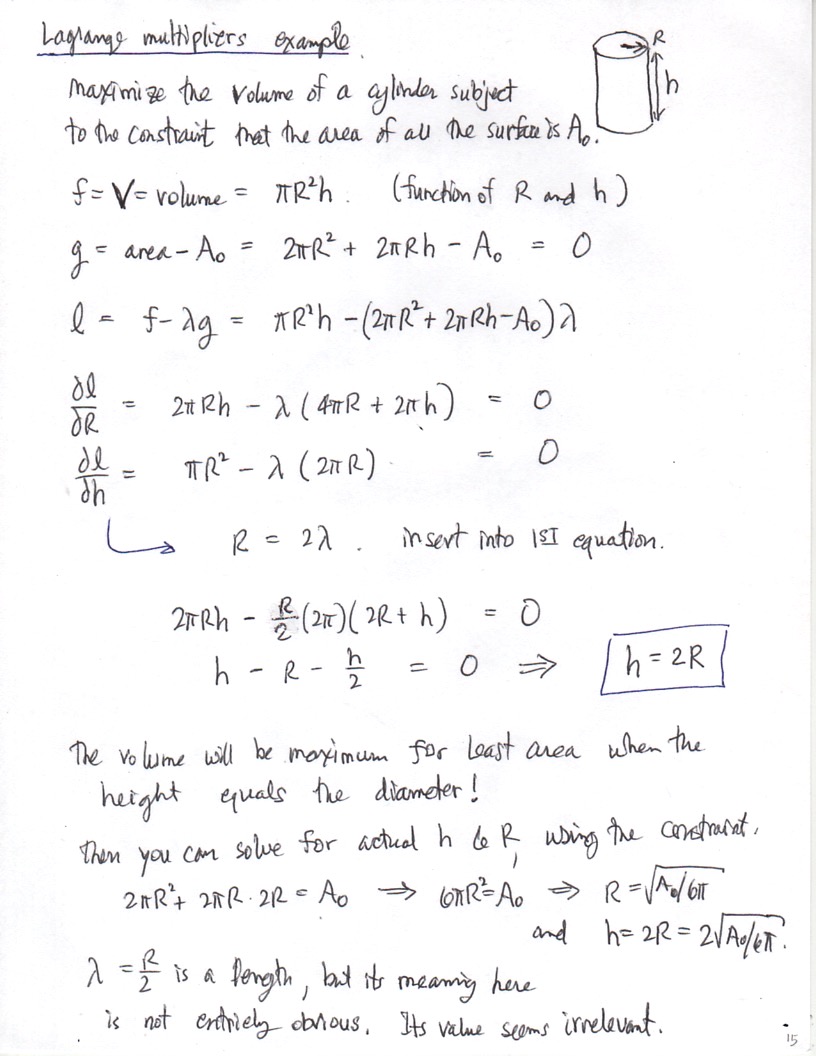 Lagrange multipliers example
R
h
Maximize the volume of a cylinder subject
to the constraint that the area of all the surface is A₀.
f = V = volume = πR²h. (function of R and h)
g = area − A₀ = 2πR² + 2πRh − A₀ = 0
l = f − λg = πR²h − (2πR² + 2πRh − A₀)λ
∂l/∂R = 2πRh − λ(4πR + 2πh) = 0
∂l/∂h = πR² − λ(2πR) = 0
R = 2λ. insert into 1ST equation.
2πRh − R/2 (2π)(2R + h) = 0
h − R − h/2 = 0 ⇒ h = 2R
The volume will be maximum for least area when the
height equals the diameter!
Then you can solve for actual h & R, using the constraint.
2πR² + 2πR · 2R = A₀ ⇒ 6πR² = A₀ ⇒ R = √A₀/6π
and h = 2R = 2√A₀/6π.
λ = R/2 is a length, but its meaning here
is not entriely obvious. Its value seems irrelevant.
15